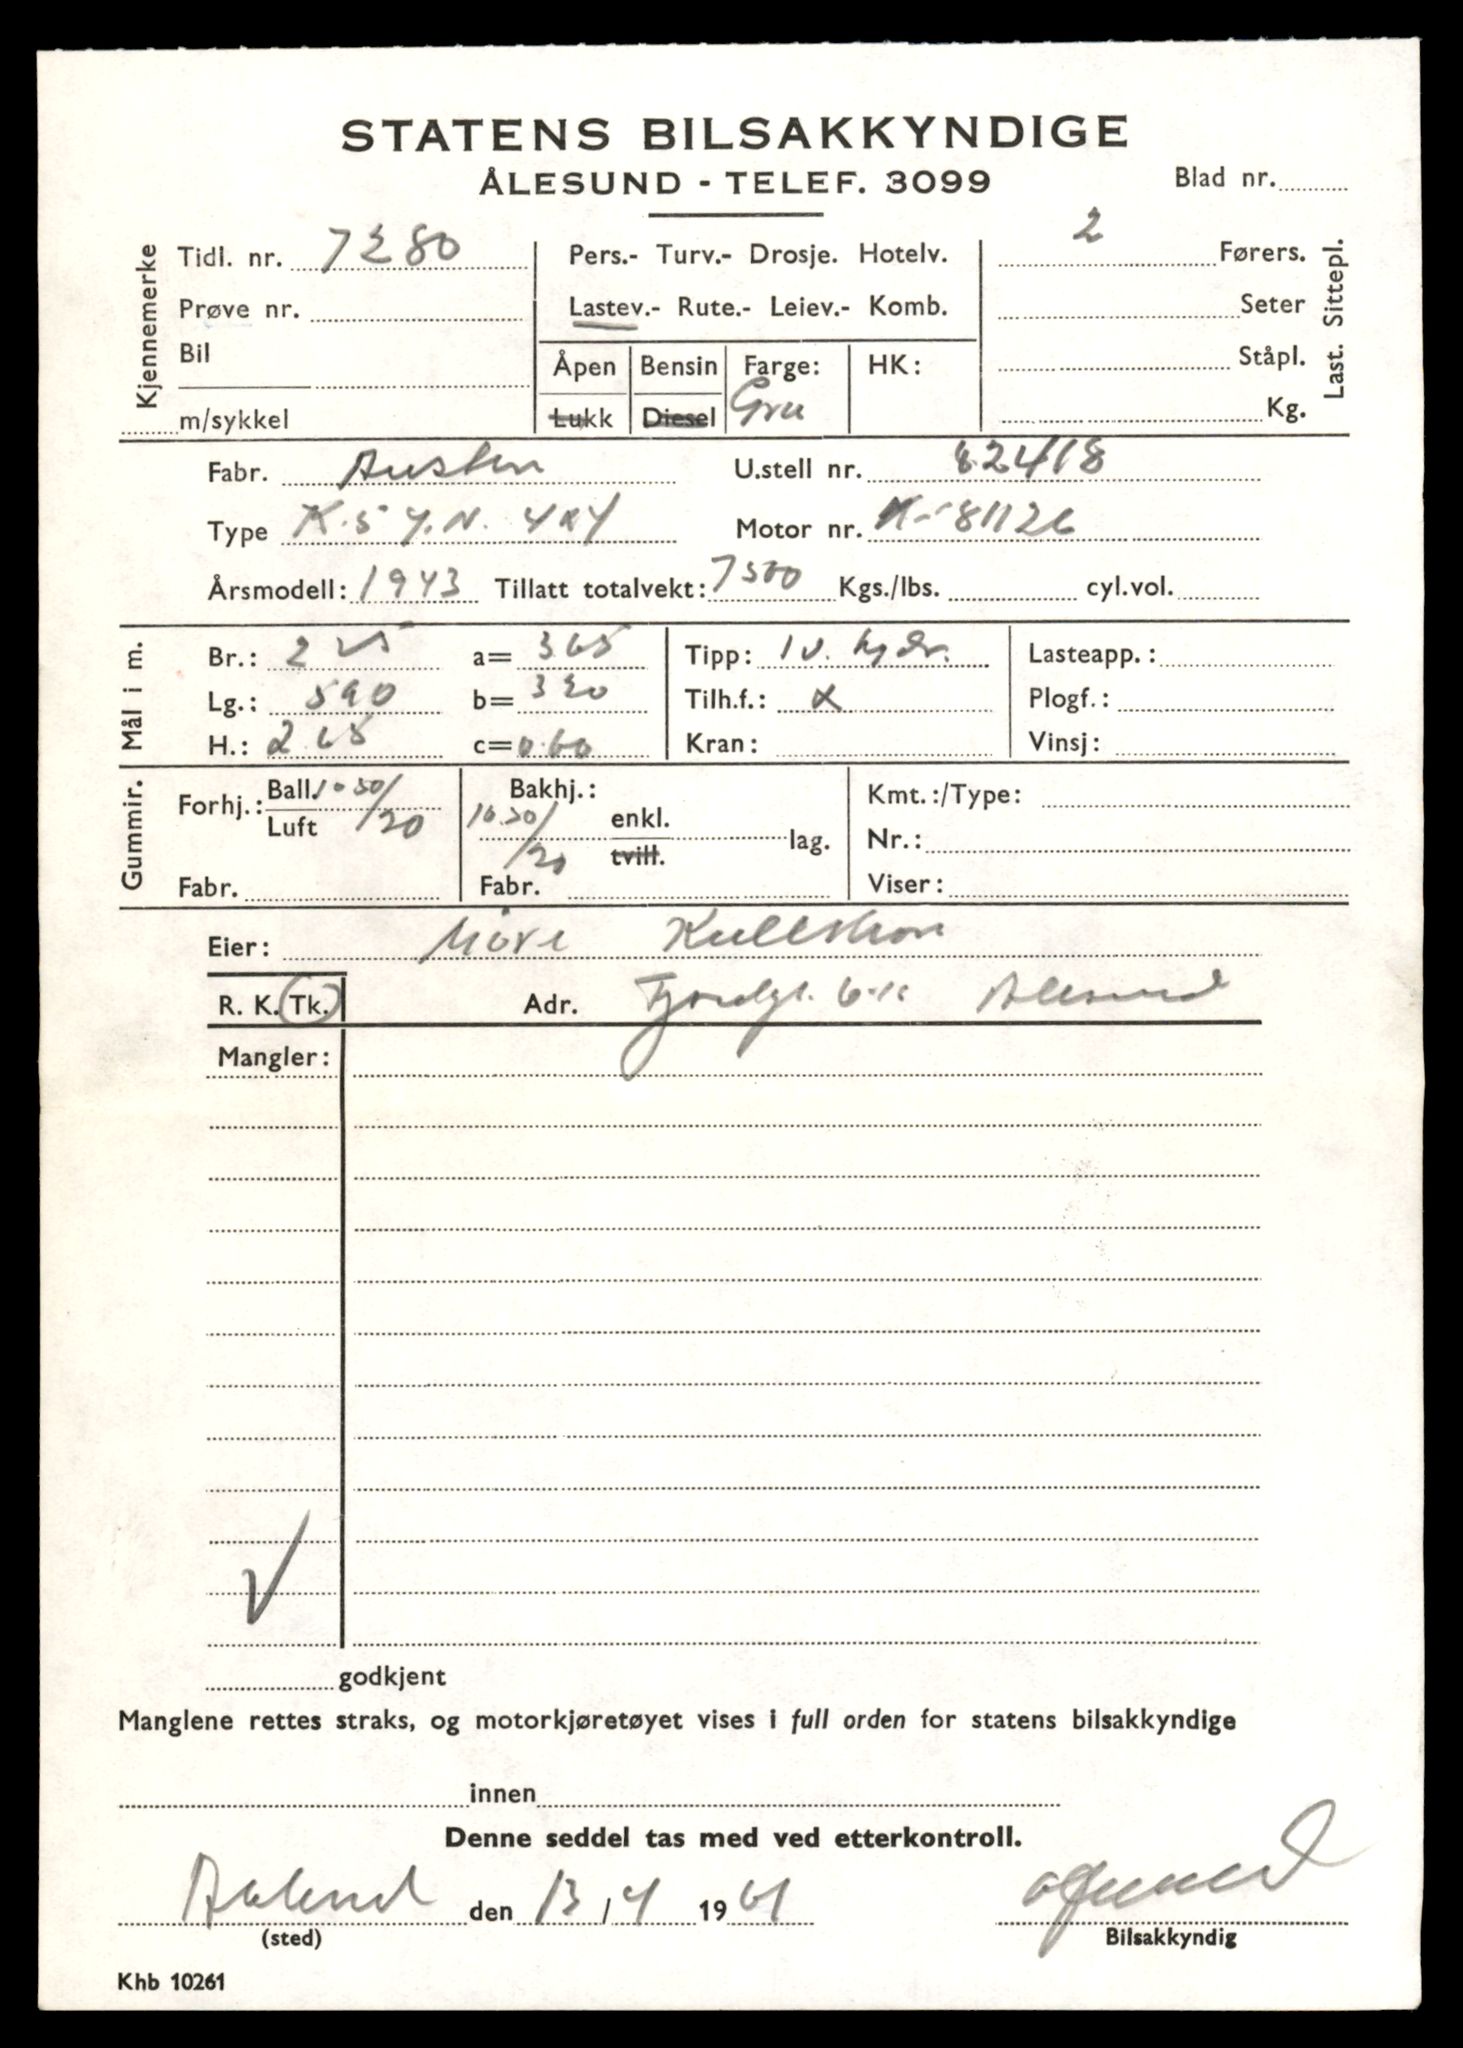 STATENS BILSAKKYNDIGE
ÅLESUND - TELEF. 3099
Blad nr.
Kjennemerke
Tidl. nr.
Prøve nr.
Bil
m/sykkel
Pers.- Turv.- Drosje. Hotelv.
Lastev.- Rute.- Leiev.- Komb.
Åpen Bensin Farge: HK:
Lukk Diesel
2 Førers.
Seter
Ståpl.
Kg.
Last. Sittepl.
Fabr. U.stell nr. 82418
Type Motor nr. K-81126
Årsmodell: 1943 Tillatt totalvekt: 7500 Kgs./lbs. cyl.vol.
Mål i m.
Br.: 225 a= 365 Tipp: hydr. Lasteapp.:
Lg.: 590 b= Tilh.f.: x Plogf.:
H.: 265 c= 0.60 Kran: Vinsj:
Gummir.
Forhj.: Ball. 10.50/20 Luft
Fabr.
Bakhj.: 10.50/20 enkl. tvill. lag.
Fabr.
Kmt.:/Type:
Nr.:
Viser:
Eier: Møre
R. K. Tk. Adr. Fjordgt. Ålesund
Mangler:
godkjent
Manglene rettes straks, og motorkjøretøyet vises i full orden for statens bilsakkyndige
innen
Denne seddel tas med ved etterkontroll.
den 13/4 1961
(sted) Bilsakkyndig
Khb 10261